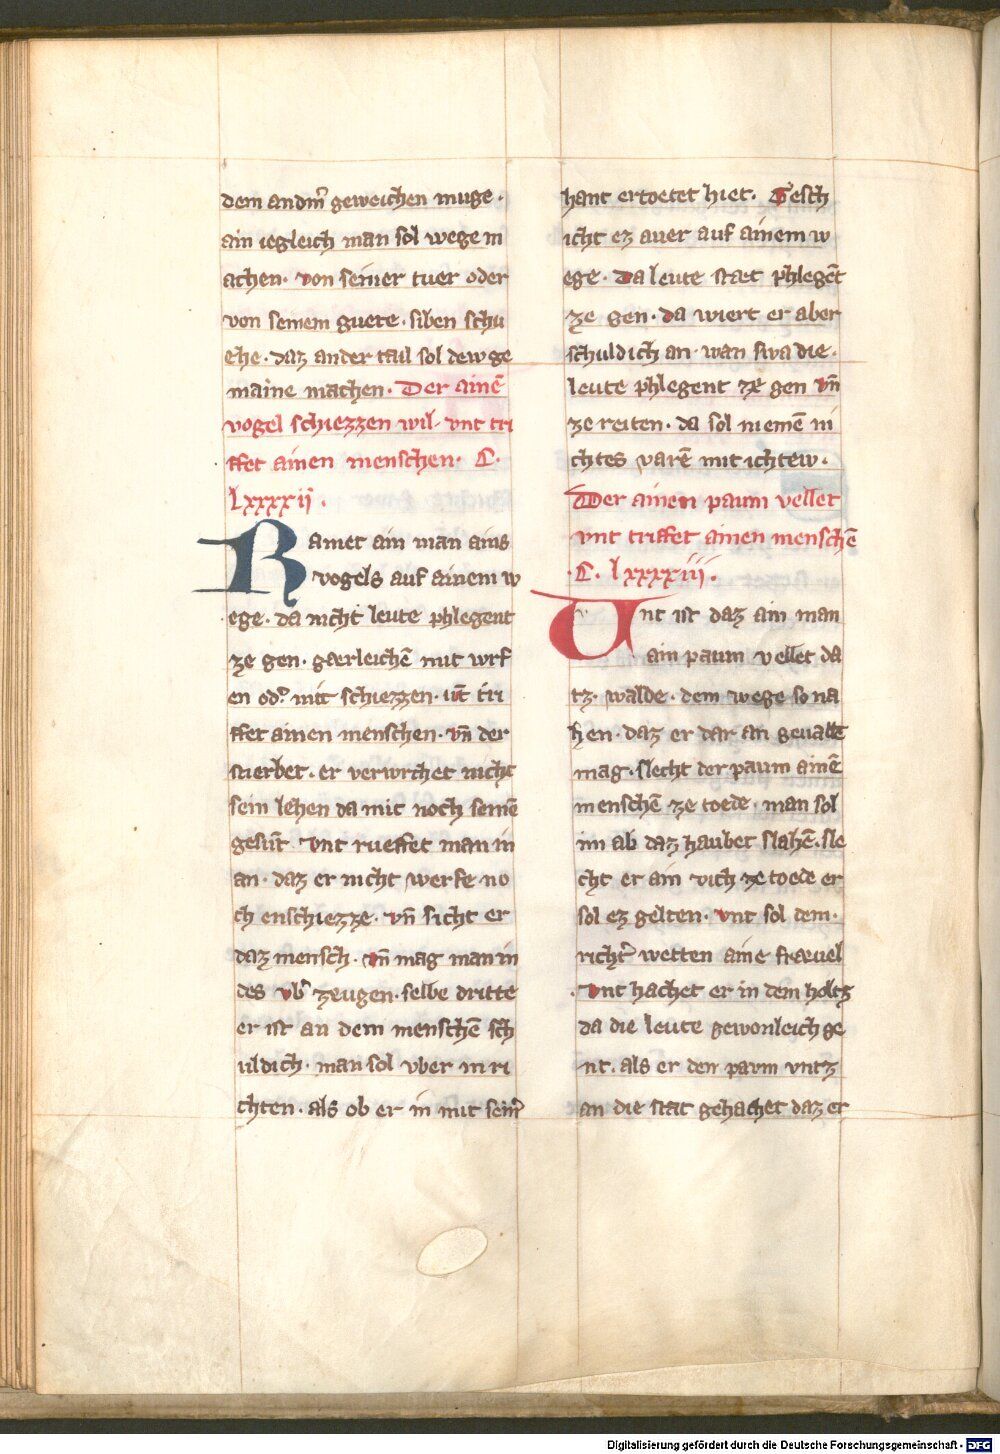 dem andm̄ geweichen muge.
ain iegleich man sol wege m
achen. von seiner tuer oder
von seinem guete. siben schu
ehe. daz ander tail sol dew ge
maine machen. Der ainē
vogel schiezzen wil. vnt tri
ffet ainen menschen. C.
lxxxxii.
Ramet ain man ains
vogels auf ainem w
ege. da nicht leute phlegent
ze gen. gaerleichē mit wrf
en od̾ mit schiezzen. vn̄t tri
ffet ainen menschen. vn̄ der
stierbet. er verwrchet nicht
sein lehen da mit noch seinē
gesūt. Vnt rueffet man in
an. daz er nicht werfe no
ch enschiezze. vn̄ sicht er
daz mensch. vn̄ mag man in
des vb̾ zeugen. selbe dritte
er ist an dem menschē sch
uldich. man sol vber in ri
chten. als ob er in mit sein̾
hant ertoetet hiet. Gesch
icht ez auer auf ainem w
ege. Da leute staet phlegēt
ze gen. da wiert er aber
schuldich an. wan swa die.
leute phlegent ze gen vn̄
ze reiten. da sol niemē ni
chtes varē mit ichtew.
Der ainen paum vellet
vnt triffet ainen menschē
.C. lxxxxiii.
Vnt ist daz ain man
ain paum vellet da
tz. walde. dem wege so na
hen. daz er dar an geuallē
mag. slecht der paum ainē
menschē ze toede. man sol
im ab daz haubet slahē. sle
cht er ain vich ze toede er
sol ez gelten. vnt sol dem.
richt̾ wetten aine fraeuel
. vnt hachet er in dem holtz
da die leute gewonleich ge
nt. als er den paum vntz
an die stat gehachet daz er
Digitalisierung gefördert durch die Deutsche Forschungsgemeinschaft - DFG